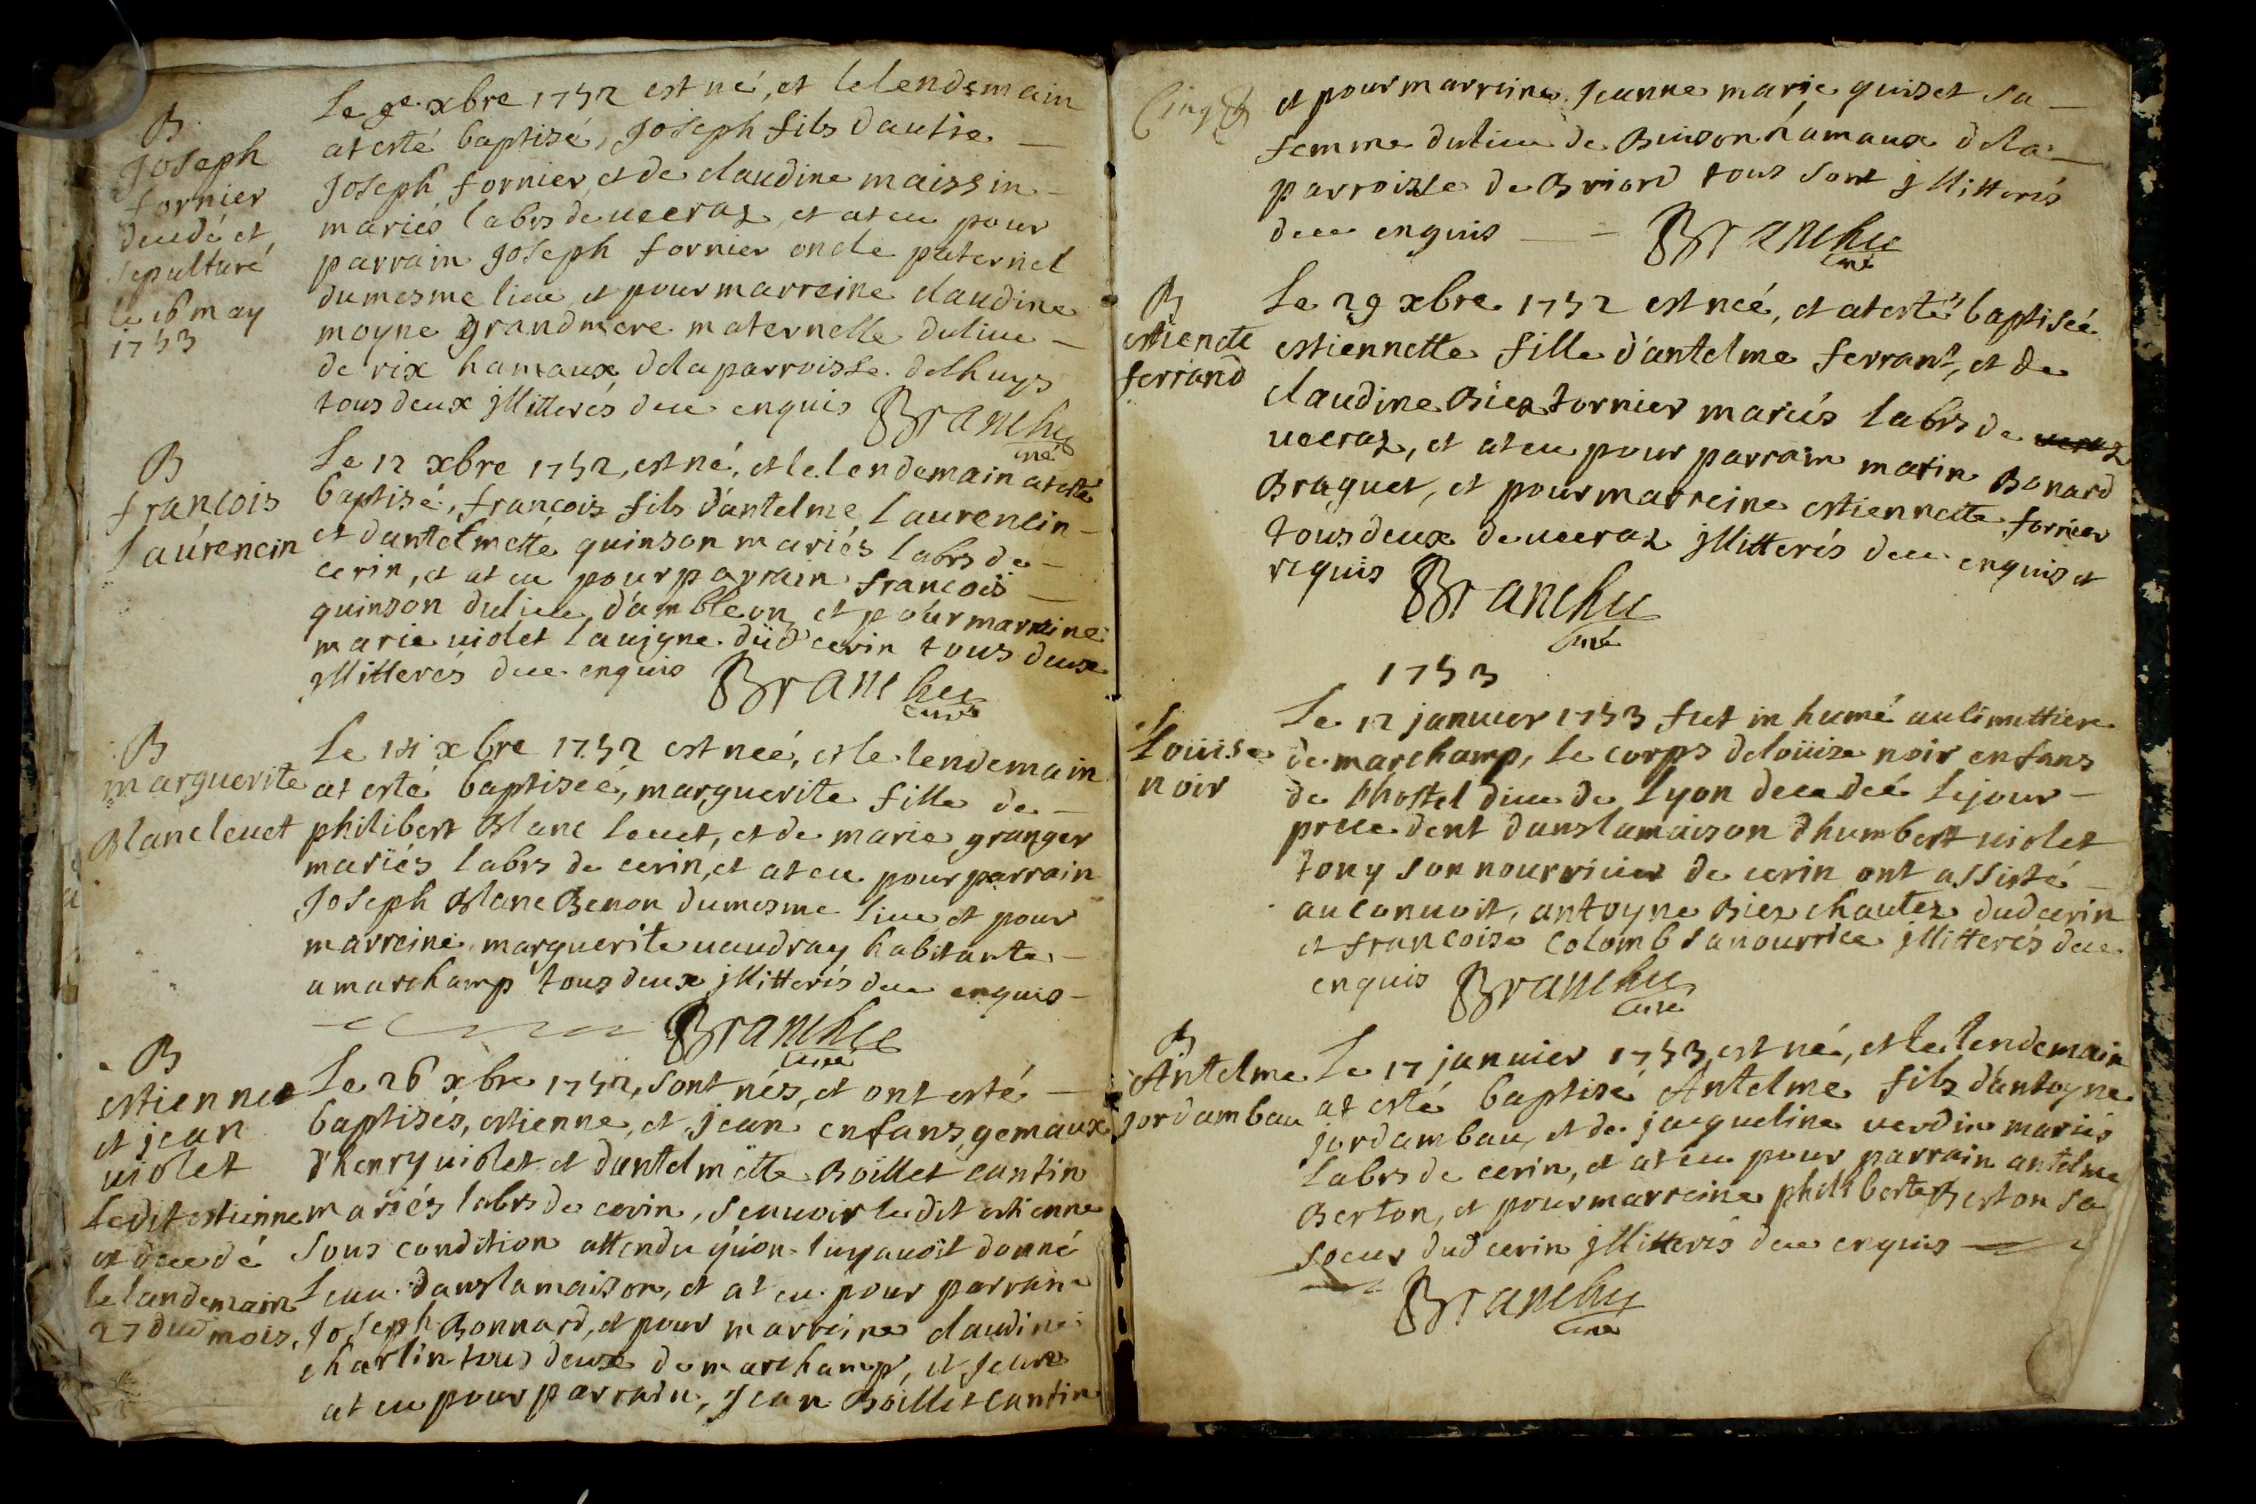 B
Joseph
fornier
decedé et
sepulturé
le 16 may
1753
Le 9e xbre 1752 est né, et le lendemain
at esté baptisé, Joseph fils d'autre
Joseph fornier, et de claudine maissin
mariés labrs de veeraz, et at eu pour
parrain Joseph fornier oncle paternel
du mesme lieu, et pour marreine claudine
moyne grandmere maternelle du lieu
de rix hameaux de la parroisse de lhuys
tous deux jllitterés de ce enquis Branchu
curé
B
francois
Laurencin
Le 12 xbre 1752, est né, et le lendemain at esté
baptisé, francois fils d'antelme Laurencin
et dantelmette quinson mariés labrs de
cerin, et at eu pour parrain francois
quinson du lieu d'ambleon, et pour marreine
marie violet lavigne dud cerin tous deux
jllitterés de ce enquis Branchu
curé
B
marguerite
Blanc levet
Le 14 xbre 1752 est neé, et le lendemain
at esté baptiseé, marguerite fille de
philibert Blanc levet, et de marie granger
mariés labrs de cerin, et at eu pour parrain
Joseph Blanc Benon du mesme lieu et pour
marreine marguerite vaudray habitante
a marchamp tous deux jllitterés de ce enquis
Branchu
curé
B
estienne
et jean
violet
ledit estienne
at decedé
le landemain
27 dud mois.
Le 26 xbre 1752, sont nés, et ont esté
baptisés, estienne, et jean enfans gemaux
d'henry violet et dantelmette Boillet cantin
mariés labrs de cerin, scavoir le dit estienne
sous condition attendu qu'on luy avoit donné
leau dans la maison, et at eu pour parrain
Joseph Bonnard, et pour marreine claudine
charlin tous deux de marchamp, et Jean
at eu pour parrain, Jean Boillet cantin
Cinq
et pour marreine Jeanne marie quiset sa
femme du lieu de Buison hamaux de la
parroisse de Briord tous sont jllitterés
de ce enquis Branchu
curé
B
estienette
ferrand
Le 29 xbre 1752 est neé, et at esté baptiseé
estiennette fille d'antelme ferrant, et de
claudine Biez fornier mariés labrs de veeraz
veeraz, et at eu pour parrain marin Bonard
Braguet, et pour marreine estiennette fornier
tous deux de veeraz jllitterés de ce enquis et
requis Branchu
curé
1753
Loüise
noir
Le 12 janvier 1753 fut inhumé au cimettiere
de marchamp, le corps de loüise noir enfans
de lhostel dieu de Lyon decedeé le jour
precedent dans la maison d'humbert violet
tony son nourricier de cerin ont assisté
au convoit, antoyne Biez chautez dud cerin
et francoise colomb sa nourrice jllitterés de ce
enquis Branchu
curé
B
Antelme
Jordambau
Le 17 janvier 1753 est né, et le lendemain
at esté baptisé Antelme fils d'antoyne
jordambau, et de jacqueline verdin mariés
labrs de cerin, et at eu pour parrain antelme
Berton, et pour marreine philiberte Berton sa
soeur dud cerin jllitterés de ce enquis
Branchu
curé